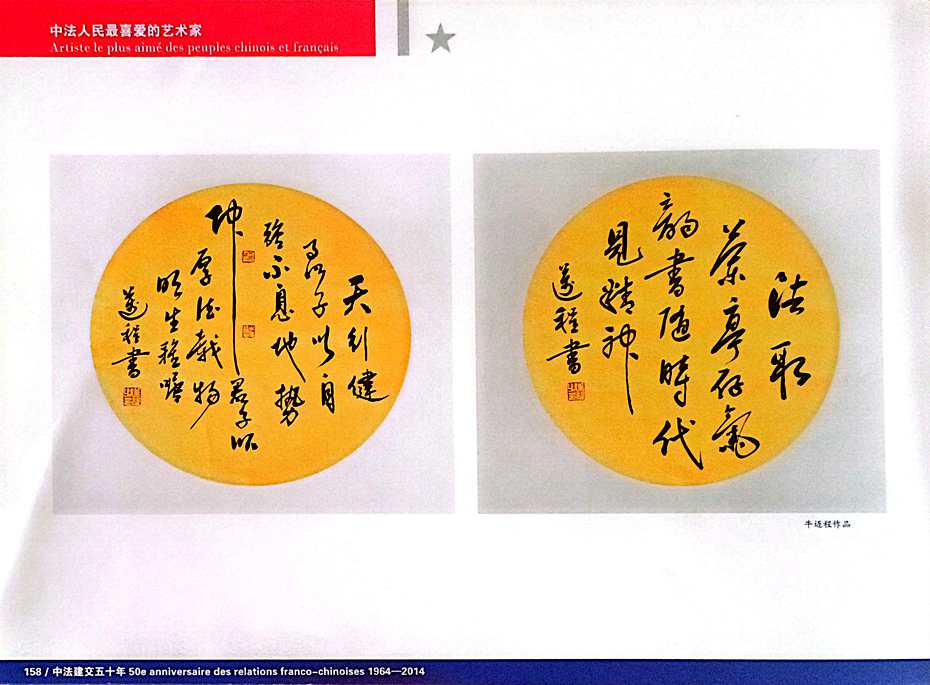 中法人民最喜爱的艺术家
Artiste le plus aimé des peuples chinois et français
天行健
君子以自
強不息地勢
坤君子以
厚德載物
邁程書
法取
蘭亭存氣
韻書隨時代
見精神
邁程書
牛迈程作品
158 / 中法建交五十年 50e anniversaire des relations franco-chinoises 1964—2014